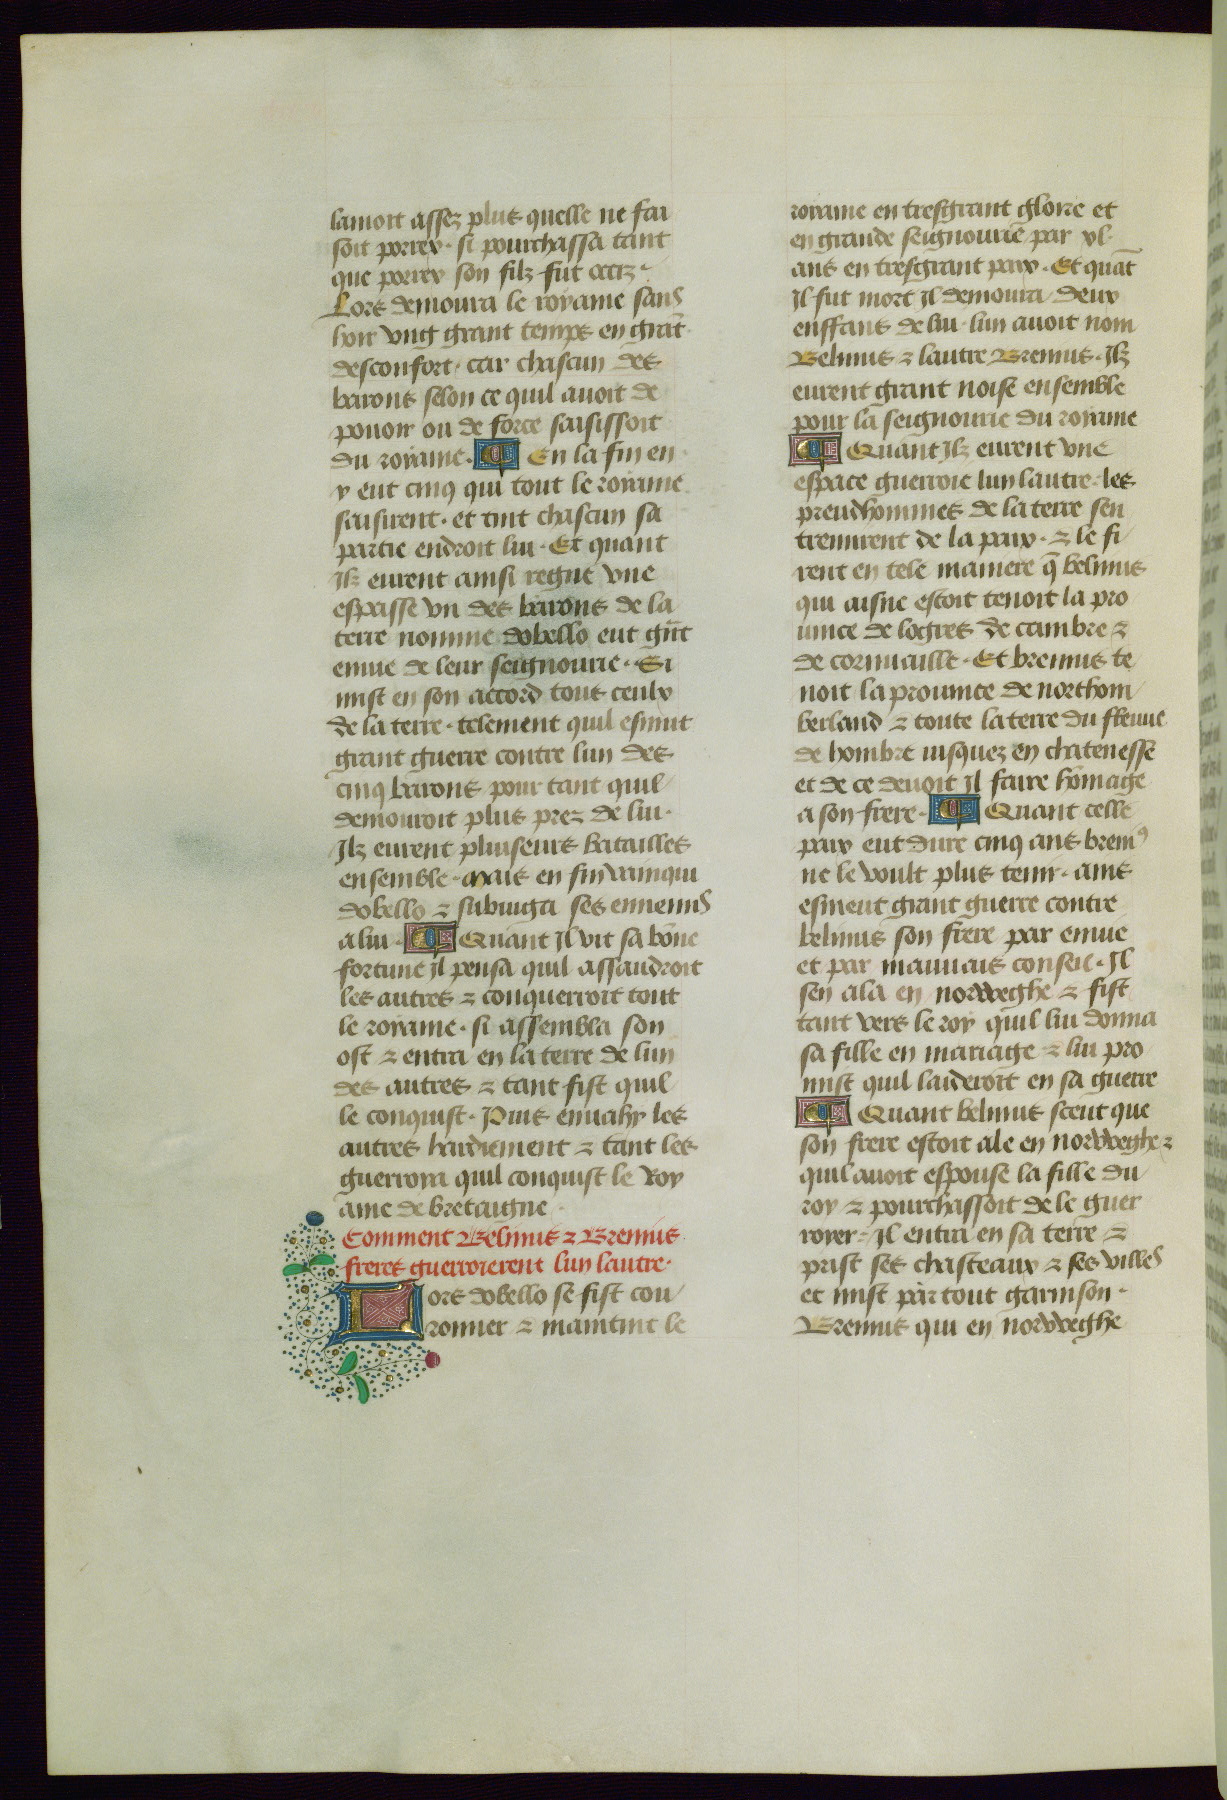 lamoit assez plus quelle ne fai
soit porrex. si pourchassa tant
que porrex son filz fut occiz.
Lors demoura le royame sans
hoir vng grant temps en grāt
desconfort. car chascun des
barons selon ce quil auoit de
pouoir ou de force saisissoit
du royame. ¶ En la fin en
y eut cinq qui tout le royame
saisirent. et tint chascun sa
partie endroit lui. Et quant
Ilz eurent ainsi regne vne
espasse vn des barons de la
terre nomme dobello eut grāt
enuie de leur seignourie. Si
mist en son accord tous ceulx
de la terre. telement quil esmut
grant guerre contre lun des
cinq barons pour tant quil
demouroit plus prez de lui.
Ilz eurent pluiseurs batailles
ensemble. Mais en fin vainqui
dobello ⁊ subiuga ses ennemis
a lui. ¶ Quant Il vit sa bōne
fortune Il pensa quil assaudroit
les autres ⁊ conquerroit tout
le royame. si assembla son
ost ⁊ entra en la terre de lun
des autres ⁊ tant fist quil
le conquist. Puis enuahy les
autres hardiement ⁊ tant les
guerroya quil conquist le Roy
ame de bretaigne.
Comment Belinus ⁊ Brennus
freres guerroierent lun lautre.
Lors dobello se fist cou
ronner ⁊ maintint le
royame en tresgrant gloire et
en grande seignourie par xl.
ans en tresgrant paix. Et quāt
Il fut mort Il demoura deux
enffans de lui. lun auoit nom
Belinus ⁊ lautre Brennus. Ilz
eurent grant noise ensemble
pour la seignourie du royame
¶ Quant Ilz eurent vne
espace guerroie lun lautre. les
preudhommes de la terre sen
tremirent de la paix. ⁊ le fi
rent en tele maniere q̄ belinus
qui aisne estoit tenoit la pro
uince de logres de cambre ⁊
de cornuaille. Et brennus te
noit la prouince de northom
berland ⁊ toute la terre du fleuue
de hombre iusquez en chatenesse
et de ce deuoit Il faire hōmage
a son frere. ¶ Quant celle
paix eut dure cinq ans brenn⁹
ne le voult plus tenir. ains
esmeut grant guerre contre
belinus son frere par enuie
et par mauuais conseil. Il
sen ala en norweghe ⁊ fist
tant vers le roy quil lui donna
sa fille en mariage ⁊ lui pro
mist quil laideroit en sa guerre
¶ Quant belinus sceut que
son frere estoit ale en norweghe ⁊
quil auoit espouse la fille du
roy ⁊ pourchassoit de le guer
royer. Il entra en sa terre ⁊
prist ses chasteaux ⁊ ses villes
et mist par tout garnison.
Brennus qui en norweghe